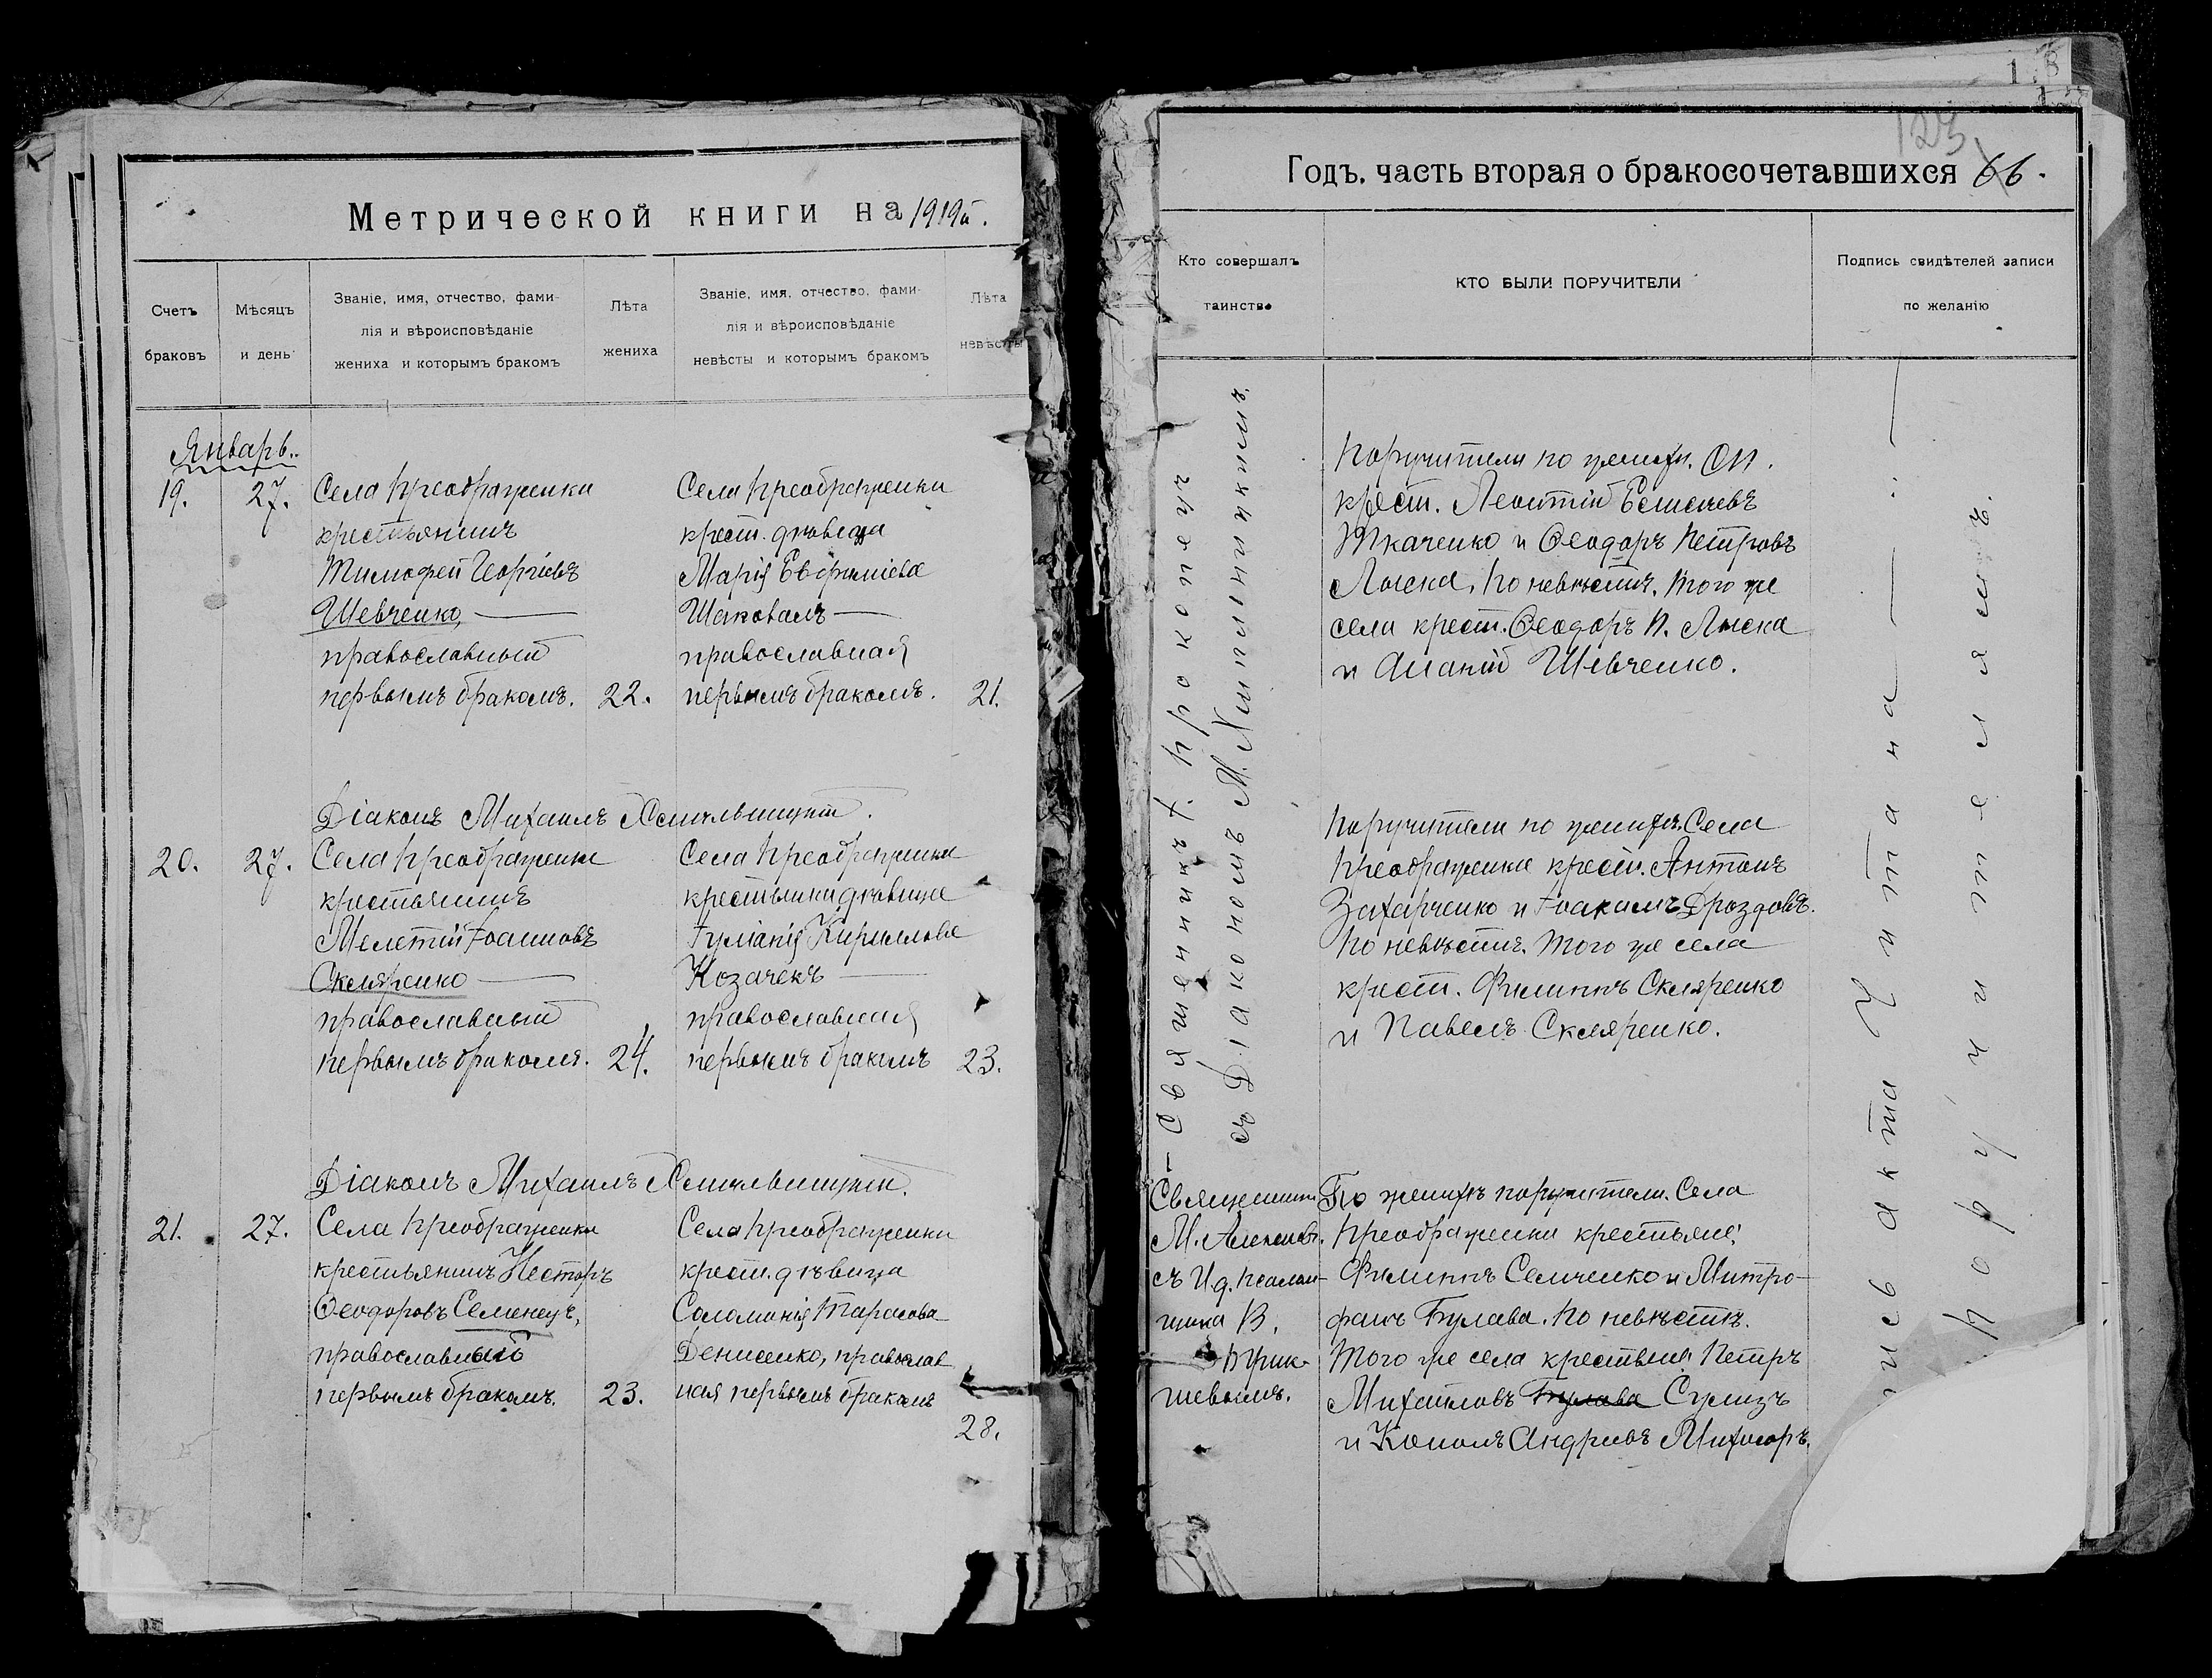 123
66.
Метрической книги на 1919й.
Счетъ браковъ
Мѣсяцъ и день
Званіе, имя, отчество, фами-
лія и вѣроисповѣданіе
жениха и которымъ бракомъ
Лѣта жениха
Званіе, имя, отчество, фами-
лія и вѣроисповѣданіе
невѣсты и которымъ бракомъ
Лѣта невѣсты
Январь.
19.
27.
Села Преображенки
крестьянинъ
Тимофей Георгіевъ
Шевченко,
православный
первымъ бракомъ.
22.
Села Преображенки
крест. дѣвица
Марія
православная
первымъ бракомъ.
21.
Діаконъ Михаилъ
20.
27.
Села Преображенки
крестьянинъ
Мелетій Іоанновъ
Скляренко
православный
первымъ бракомъ.
24.
Села Преображенки
дѣвица
Іуліанія Кириллова
Козачекъ
православная
первымъ бракомъ
23.
Діаконъ Михаилъ
21.
27.
Села Преображенки
крестьянинъ Несторъ
Ѳеодоровъ Семенецъ,
православный
первымъ бракомъ.
23.
Села Преображенки
крест. дѣвица
Соломонія Тарасова
Денисенко, православ
ная первымъ бракомъ
28.
Годъ, часть вторая о бракосочетавшихся
Кто совершалъ
таинство
КТО БЫЛИ ПОРУЧИТЕЛИ
Подпись свидѣтелей записи
по желанію
Священникъ
съ Діакономъ М.
Поручители по жениху.
крест. Леонтій
Ткаченко и Ѳеодоръ Петровъ
Лыска. По невѣстѣ. Того же
села крест. Ѳеодоръ П. Лыска
и Ананій Шевченко.
Поручители по жениху. Села
Преображенки крест. Антонъ
Захарченко и Іоакимъ Дроздовъ.
По невѣстѣ. Того же села
крест. Филиппъ Скляренко
и Павелъ Скляренко.
Священник
М. Алексѣев.
съ И.д. псалом-
щика В.
По женихѣ поручители. Села
Преображенки крестьяне:
Филиппъ Семченко и Митро-
фанъ Булава. По невѣстѣ.
Того же села крестьяне Петръ
Михайловъ Булава
и Кононъ Андреевъ
акта Читана
поручителямъ.